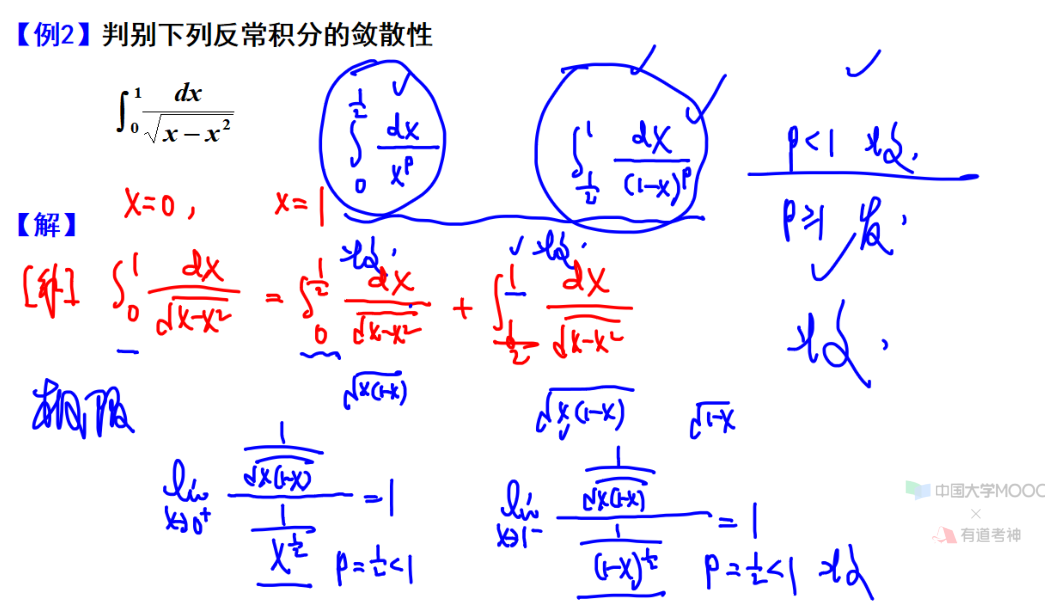 【例2】判别下列反常积分的敛散性
∫₀¹ dx/√(x−x²)
∫₀^(1/2) dx/x^p
∫_(1/2)^1 dx/(1−x)^p
p<1 收敛.
p≥1 发.
x=0, x=1
【解】
收敛. 收敛.
[解] ∫₀¹ dx/√(x−x²) = ∫₀^(1/2) dx/√(x−x²) + ∫_(1/2)^1 dx/√(x−x²)
收敛.
√(x(1−x)) √(x(1−x)) √(1−x)
极限
lim x→0⁺ (1/√(x(1−x)))/(1/x^(1/2)) = 1
p=1/2<1
lim x→1⁻ (1/√(x(1−x)))/(1/(1−x)^(1/2)) = 1
p=1/2<1 收敛
中国大学MOOC
×
有道考神